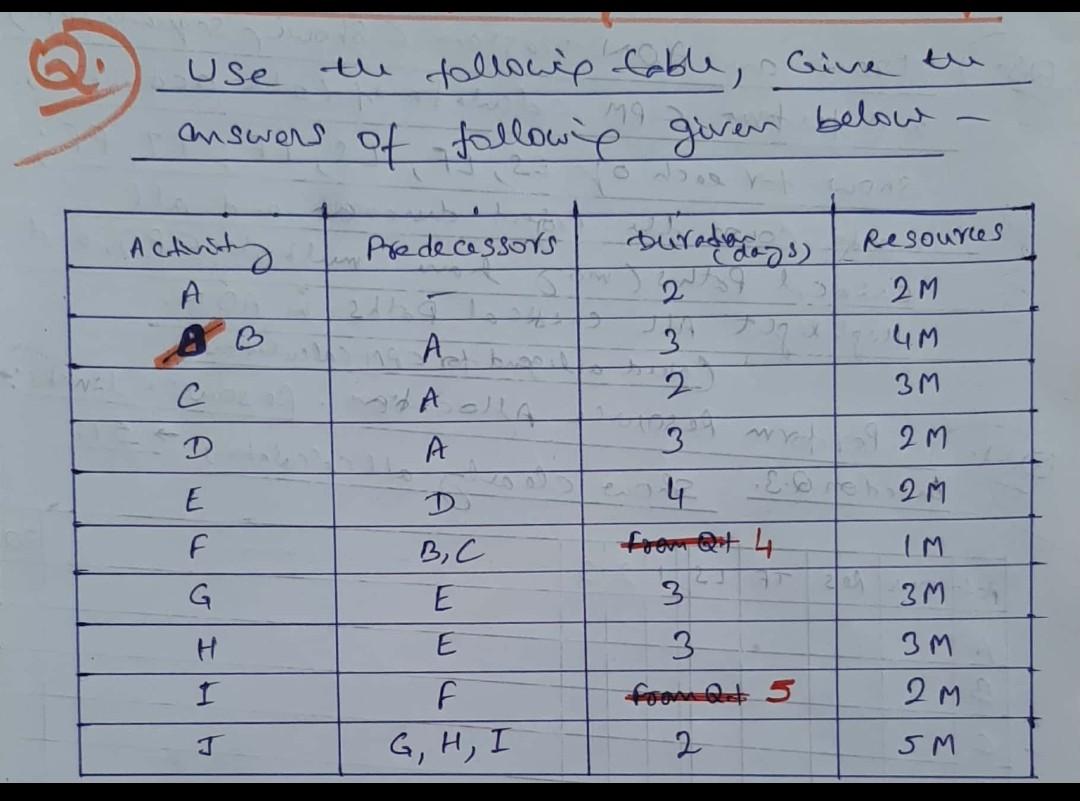 Q.
Use the following table, Give the
answers of following given below -
Activity Predecessors Duration (days) Resources
A - 2 2M
B A 3 4M
C A 2 3M
D A 3 2M
E D 4 2M
F B, C from Q1 4 1M
G E 3 3M
H E 3 3M
I F from Q1 5 2M
J G, H, I 2 5M